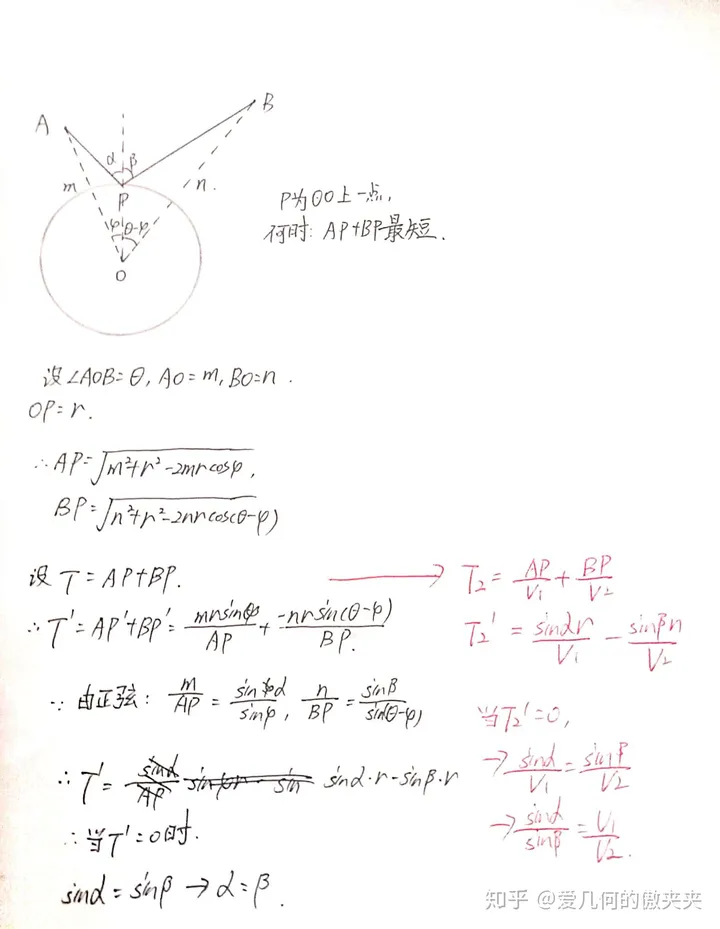 A
B
α β
m
n.
P
φ θ-φ
O
P为⊙O上一点,
何时: AP+BP最短.
设∠AOB=θ, AO=m, BO=n.
OP=r.
∴AP=√(m²+r²-2mrcosφ),
BP=√(n²+r²-2nrcos(θ-φ))
设T=AP+BP.
∴T'=AP'+BP'=mrsinφ/AP+-nrsin(θ-φ)/BP.
∵由正弦: m/AP=sinα/sinφ, n/BP=sinβ/sin(θ-φ)
∴T'= sinα·r-sinβ·r
∴当T'=0时.
sinα=sinβ→α=β.
→T₂=AP/V₁+BP/V₂
T₂'=sinαr/V₁-sinβn/V₂
当T₂'=0,
→sinα/V₁=sinβ/V₂
→sinα/sinβ=V₁/V₂.
知乎 @爱几何的傲夹夹